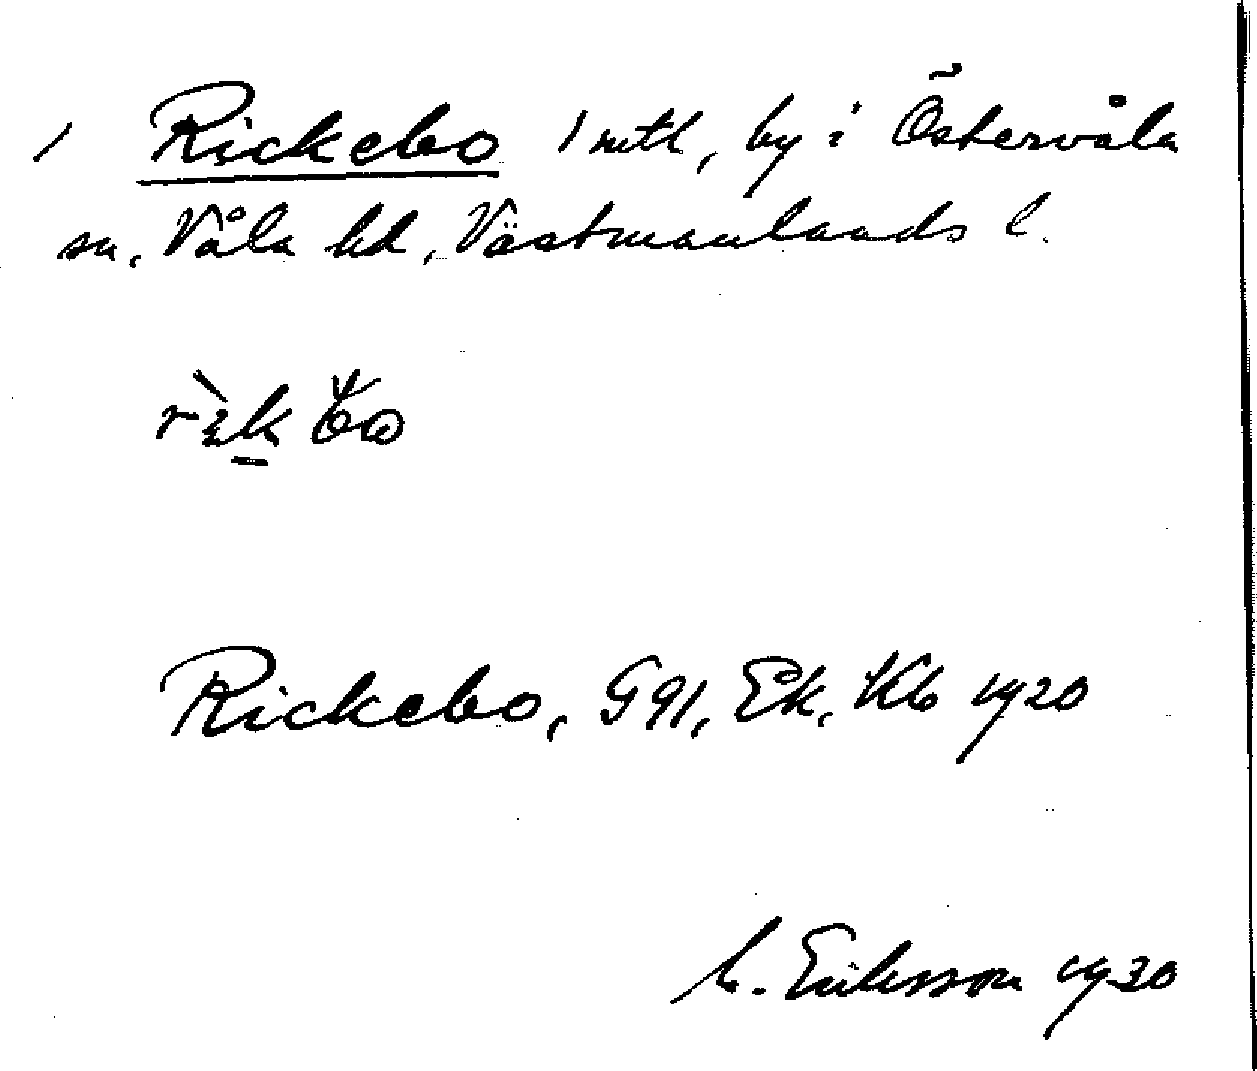 / Rickebo 1 mtl, by i Östervåla
sn, Våla hd, Västmanlands l.
Rickebo, G 91, Ek, Kb 1920
Eriksson 1930